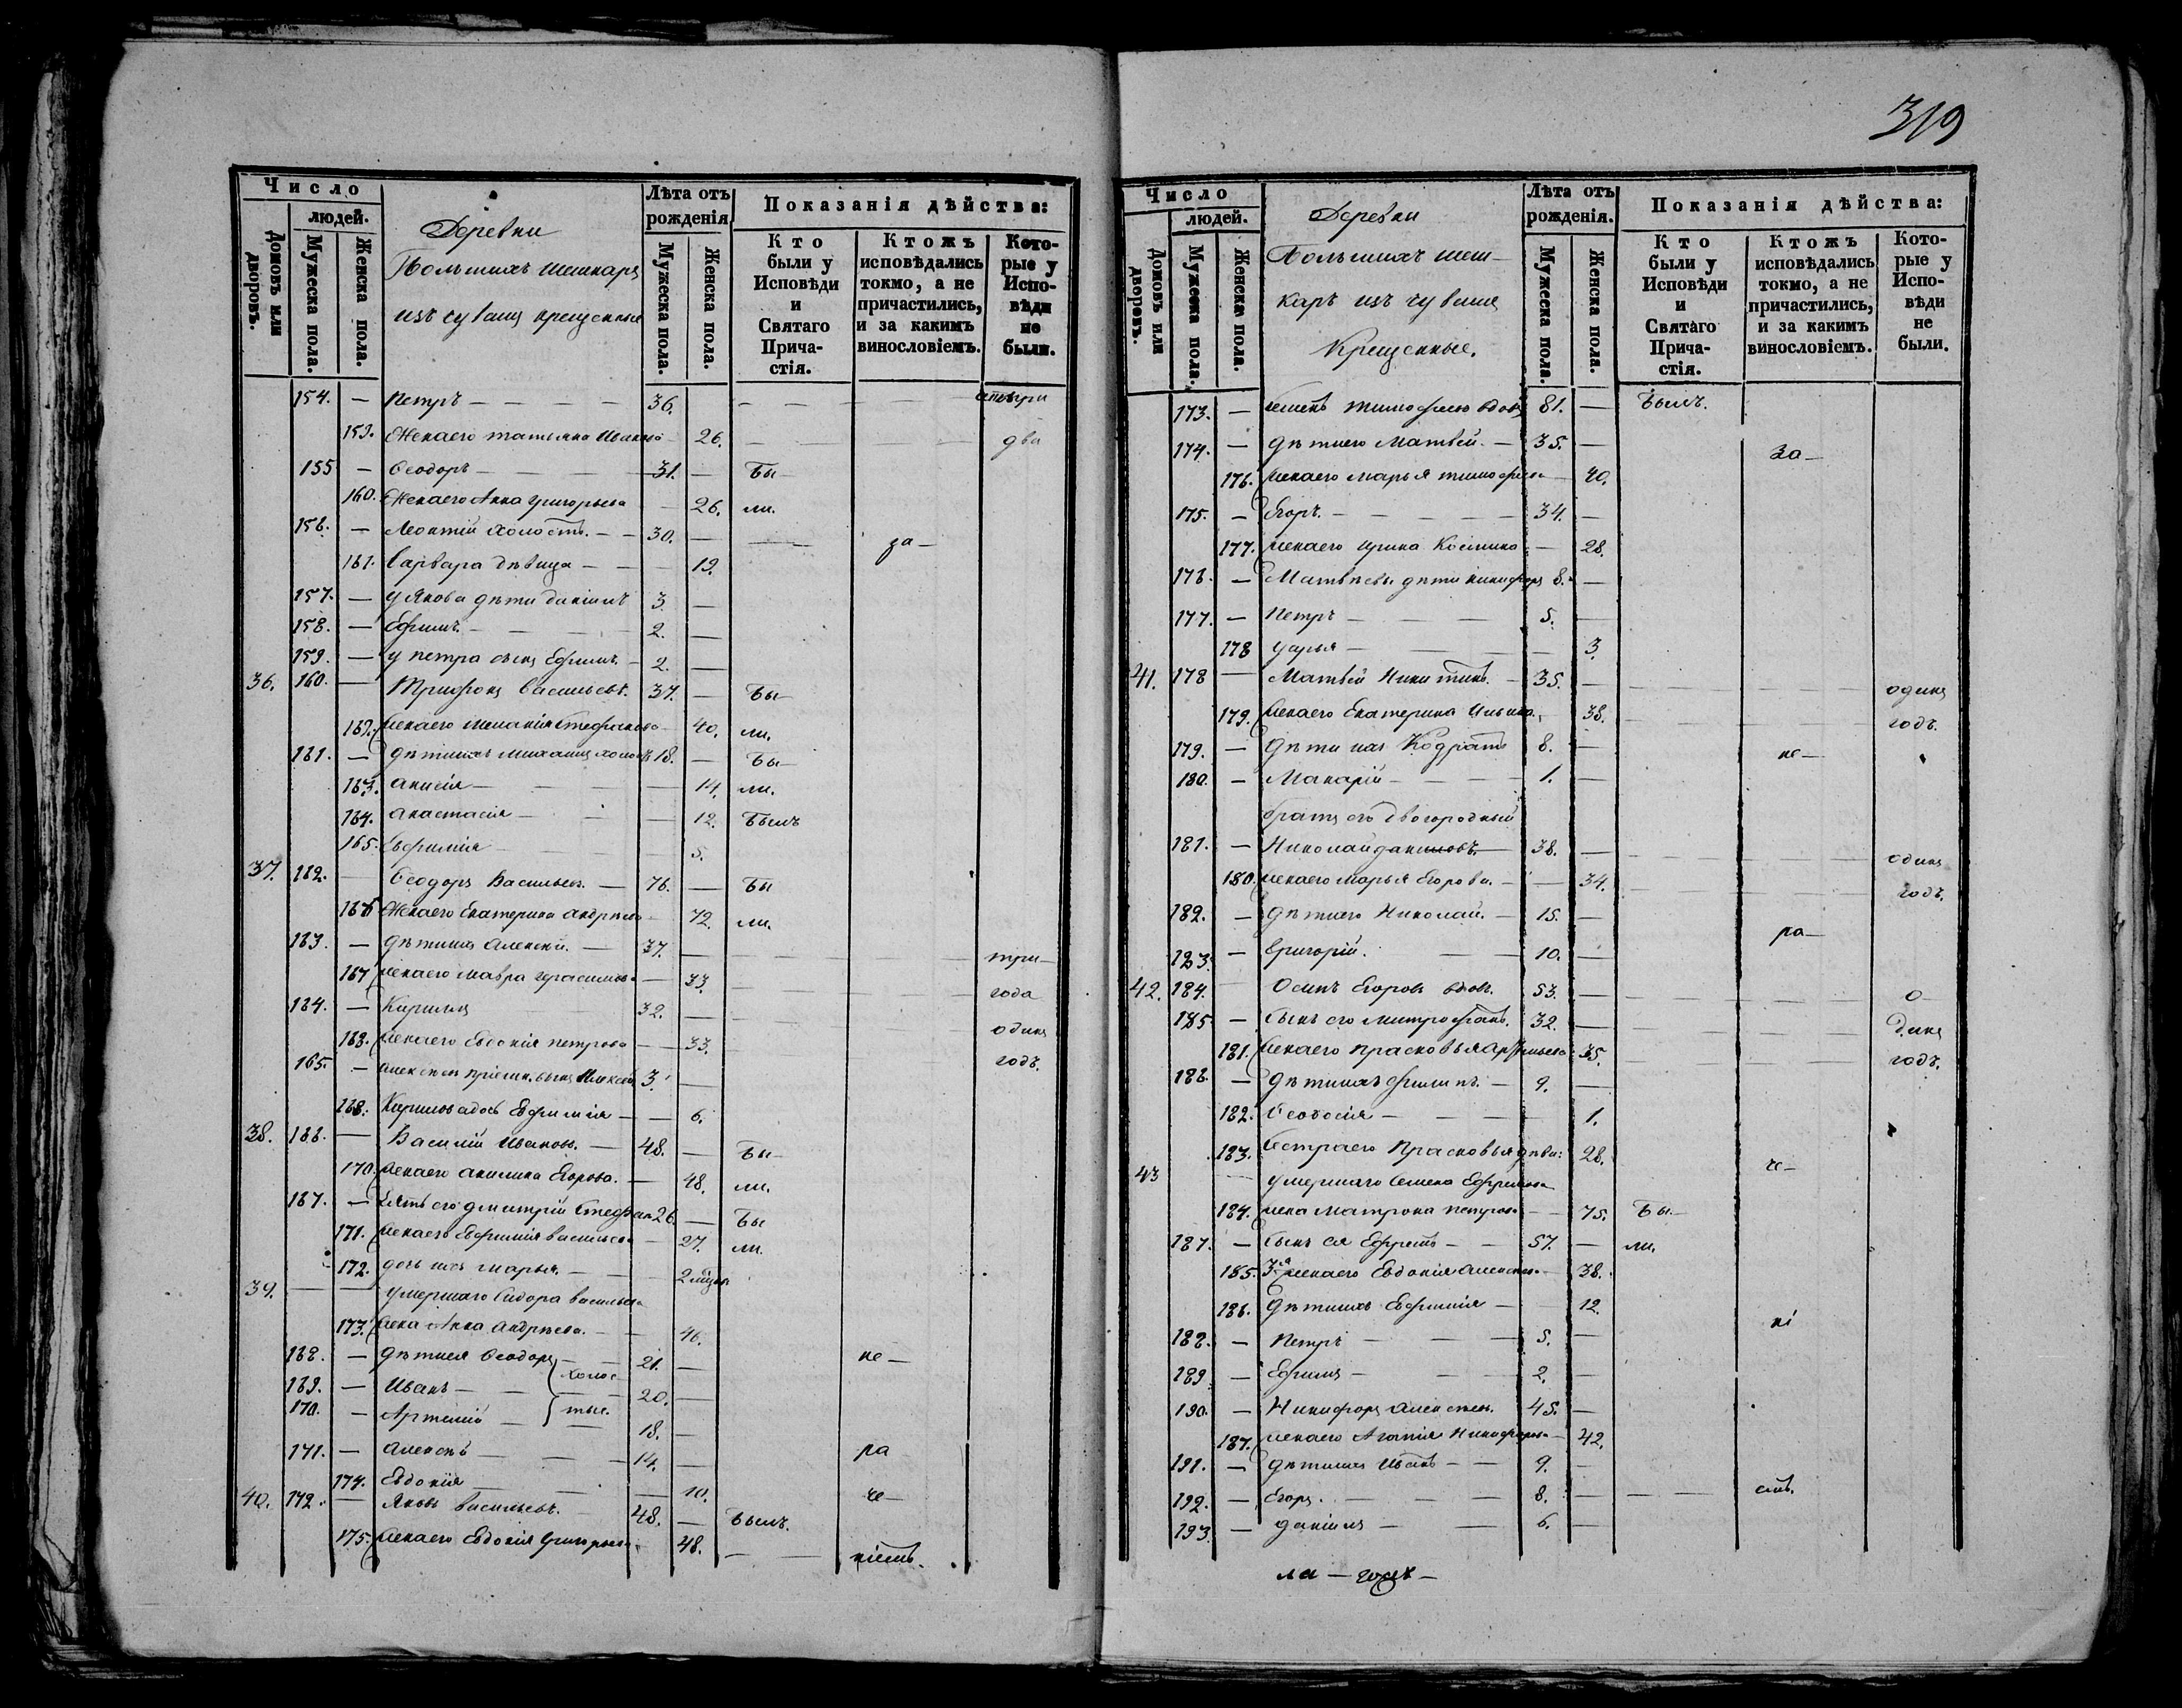 Число
людей.
Домовъ или дворовъ.
Мужеска пола.
Женска пола.
Деревни
Большихъ шешкаръ
изъ чувашъ крещенные
Лѣта отъ рожденія
Мужеска пола.
Женска пола.
Показанія дѣйства:
Кто были у Исповѣди и Святаго Причастія.
Ктожъ исповѣдались токмо, а не причастились, и за какимъ винословіемъ.
Которые у Исповѣди не были.
154. — Петръ — 36.
159. Жена его татьяна Иванова 26. два
155 — Ѳеодоръ — 31. — Бы
160. Жена его Анна Григорьева 26. ли.
156. — Леонтій холостъ. — 30. — за —
161. Варвара дѣвица — 19.
157. — у Якова дѣти даніилъ 3 —
158. — Ефимъ. — 2. —
159. — у петра сынъ Ефимъ. — 2. —
36. 160. — Трифонъ Васильевъ. 37. — Бы
162. жена его Меланія Стефанова 40. ли.
161. — дѣти ихъ михаилъ холос 18. — Бы
163. анисія — 14. ли.
164. анастасія — 12. Былъ
165. Евфимія 5.
37. 162. Ѳеодоръ Васильев. — 76. — Бы
166 Жена его Екатерина андреева 72. ли.
163. — дѣти ихъ алексей. — 37. — три
167 жена его мавра герасимова — 33. года
164. — Кирилъ 32. — одинъ
168. жена его Евдокія петрова — 33. годъ.
165. — 3. —
168. Евфимія — 6.
38. 166. — Василій Ивановъ. — 48. — Бы
170. жена его акилина Егорова. — 48. ли.
167. — зять его дмитрій Стефан 26. — Бы
171. жена его Евфимія васильева 27. ли.
172. дочь ихъ марья. — 2
39. — умершаго Сидора васильева
173. жена Анна андреева. — 46.
168. — дѣти ея Ѳеодоръ — 21. — не —
169. — Иванъ — холос 20. —
170. — Артемій — тые. 18. —
171. — алексѣй — 14. — ра
174. Евдокія — 10. че —
40. 172. — Яковъ васильевъ. 48. — Былъ.
175. жена его Евдокія Григорьева 48. — ніемъ.
319
Число
людей.
Домовъ или дворовъ.
Мужеска пола.
Женска пола.
Деревни
Большихъ шеш-
каръ изъ чувашъ
Крещенные.
Лѣта отъ рожденія.
Мужеска пола.
Женска пола.
Показанія дѣйства:
Кто были у Исповѣди и Святаго Причастія.
Ктожъ исповѣдались токмо, а не причастились, и за какимъ винословіемъ.
Которые у Исповѣди не были.
173. — тимофеев вдов 81. — Былъ.
174. — дѣти его Матвей. — 35. — за —
176. жена его марья тимофеева 40.
175. — Егоръ. — 34. —
177. жена его ирина — 28.
176. — Матвѣевы дѣти никифоръ 8. —
177. — Петръ — 5. —
178 дарья — 3.
41. 178 — Матвей Никитинъ. — 35. — одинъ
179. жена его Екатерина Ильина. 38. годъ.
179. — дѣти ихъ Кодратъ 8. — не —
180. — Макарій — 1. —
братъ его двогородный
181. — Николай даниловъ. 38. — одинъ
180. жена его марья Егорова. — 34. годъ.
182. — дѣти его Николай. — 15. — ра —
183. — Григорій. — 10. —
42. 184. Осипъ Егоровъ вдовъ. 53. — о
185. — сынъ его митрофанъ. 32. — динъ
181. жена его прасковья 35. годъ.
186. — дѣти ихъ филипъ. — 9. —
182. Ѳеодосія — 1.
183. сестра его прасковья дѣви: 28. че —
43 — умершаго Семена Ефремова
184. жена матрона петрова — 75. Бы —
187. — сынъ ея Ефремъ — 57. — ли.
185. 3я жена его Евдокія алексеева 38.
186. дѣти ихъ Евфимія — 12. ні
188. — Петръ — 5. —
189. — Ефимъ — 2. —
190. — Никифоръ алексеев. 45. —
187. жена его Агафія Никифорова 42.
191. — дѣти ихъ Иванъ — 9. —
192. — Егоръ. — 8. — емъ.
193. — даніилъ — 6. —